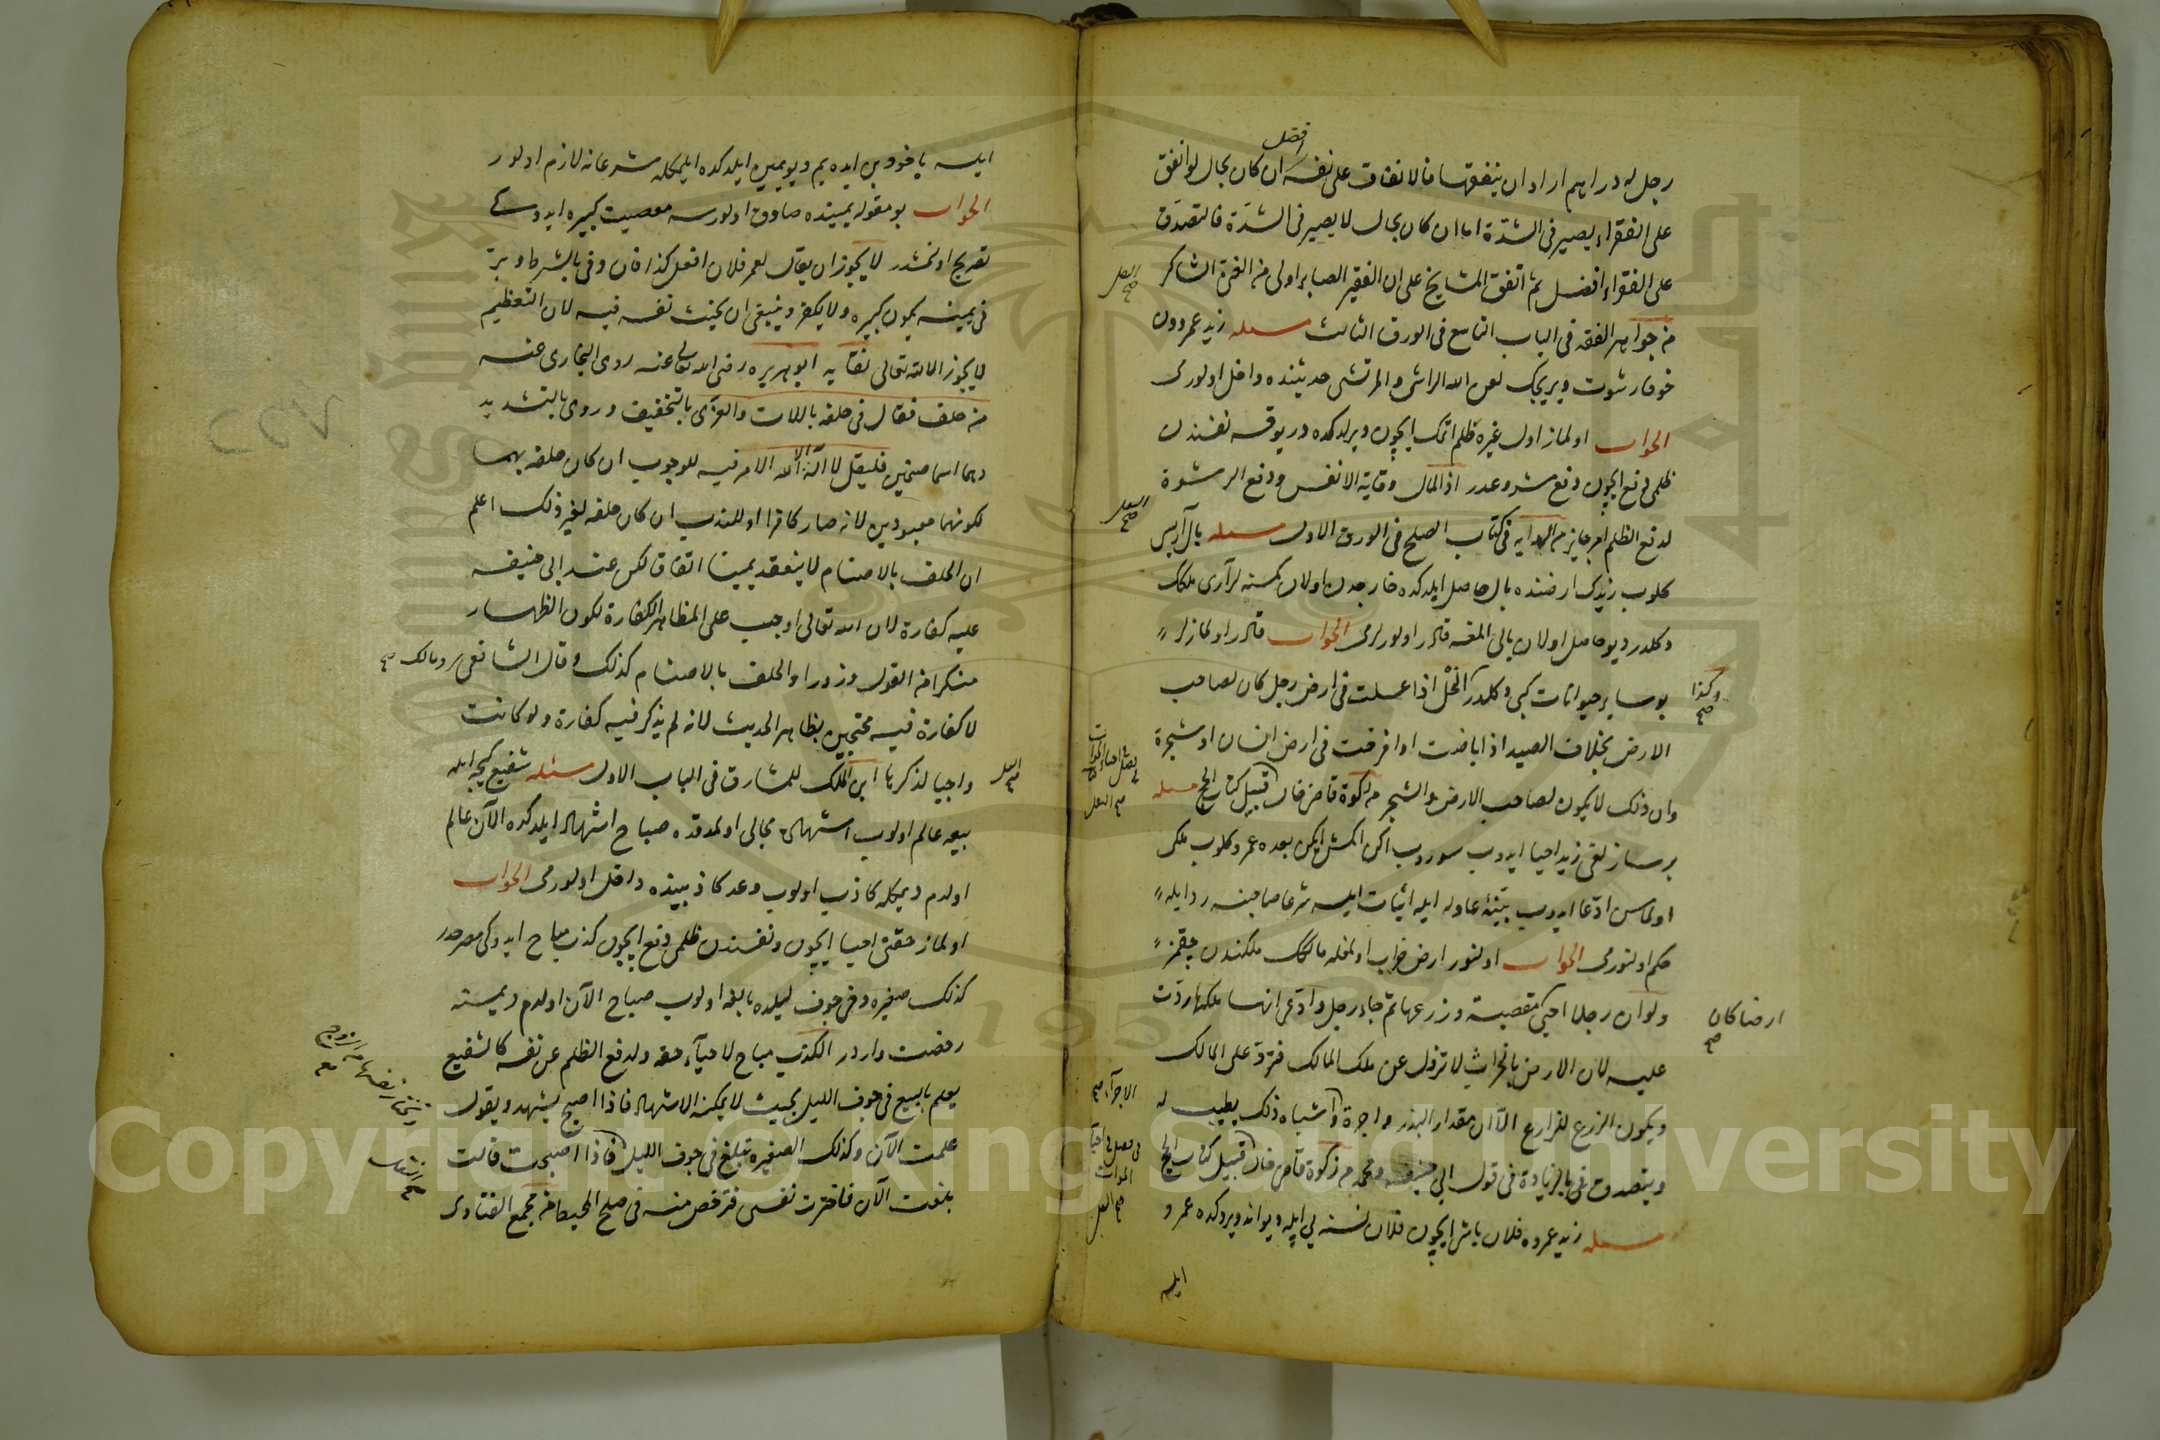 افضل
رجل له دراهم اراد ان ينفقها فالانفاق على نفسه ان كان بحال لو انفق
على الفقراء يصير فى الشدة اما ان كان بحال لا يصير فى الشدة فالتصدق
على الفقراء افضل ثم اتفق المشايخ على ان الفقير الصابر اولى من الغنى الشاكر
من جواهر الفقه فى الباب التاسع فى الورق الثالث مسئله زيد عمرودن
خوفا رشوت ويريجك لعن الله الراشى والمرتشى حديثنده داخل اولورمى
الجواب اولماز اول غيره ظلم اتمك ايچون ويرلدكده در يوقسه نفسندن
ظلمى دفع ايچون دفع مشروعدر اذ المال وقاية الانفس ودفع الرشوة
لدفع الظلم امر جايز من الهدايه فى كتاب الصلح فى الورق الاول مسئله بال آريسى
كلوب زيدك ارضنده بال حاصل ايلدكده خارجدن اولان كمسنه لر آرى ملك
دكلدر ديو حاصل اولان بالى المغه قادر اولورلرمى الجواب قادر اولمازلر
بو ساير حيوانات كبى دكلدر النحل اذا عسلت فى ارض رجل كان لصاحب
الارض بخلاف الصيد اذا باضت او افرخت فى ارض انسان او شجرة
وان ذلك لا يكون لصاحب الارض والشجر من زكوة قاضى خان قبيل كتاب الحج مسئله
بر سازلغى زيد احيا ايدوب سوروب اكن اكمش ايكن بعده عمرو كلوب ملكى
اولماسن ادعا ايدوب بينۀ عادله ايله اثبات ايلسه شرعا صاحبنه رد ايله
حكم اولنورمى الجواب اولنور ارض خراب اولمغله مالكك ملكندن چقمز
ولو ان رجلا احيى مقصبة وزرعها ثم جاء رجل وادعى انها ملكه ردت
عليه لان الارض بالخراب لا تزول عن ملك المالك فترد على المالك
ويكون الزرع للزارع الا ان مقدار البذر واجرة واشباه ذلك يطيب له
ويتصدق فى بالزيادة فى قول ابى حنيفه ومحمد من زكوة قاضى خان قبيل كتاب الحج
مسئله زيد عمروه فلان باش ايچون فلان نسنه يى ايله ديو اند ويردكده عمرو
ايلسه
وكذا صح
ارضا كان صح
ايلسه ياخود بن ايده يم ديو يمين ايلدكده ايلمكله شرعا نه لازم اولور
الجواب بو مقوله يمينده صادق اولورسه معصيت كبيره ايدوكى
تصريح اولنمشدر لا يجوز ان يقال لعمر فلان افعل كذا فان وفى بالشرط وبر
فى يمينه يكون كبيره ولا يكفر وينبغى ان يحنث نفسه فيه لان التعظيم
لا يجوز الا لله تعالى نقايه ابو هريره رضى الله تعالى عنه روى البخارى عنه
من حلف فقال فى حلفه باللات والعزى بالتخفيف وروى بالتشديد
وهما اسما صنمين فليقل لا اله الا الله الامر فيه للوجوب ان كان حلفه بهما
لكونهما معبودين لانه صار كافرا او للندب ان كان حلفه لغير ذلك اعلم
ان الحلف بالاصنام لا ينعقد يمينا اتفاقا لكن عند ابى حنيفه
عليه كفارة لان الله تعالى اوجب على المظاهر الكفارة لكون الظهار
منكرا من القول وزورا والحلف بالاصنام كذلك وقال الشافعى ومالك صح
لا كفارة فيه محتجين بظاهر الحديث لانه لم يذكر فيه كفارة ولو كانت
واجبا لذكر ها ابن الملك للمشارق فى الباب الاول مسئله شفيع كيجه ايله
بيعه عالم اولوب اشهاده مجالى اولمدقده صباح اشهاد ايلدكده الآن عالم
اولدم ديمكله كاذب اولوب وعد كاذبينده داخل اولورمى الجواب
اولماز حقنى احيا ايچون ونفسندن ظلمى دفع ايچون كذب مباح ايدوكى مصرحدر
كذلك صغيره دخى جوف ليلده بالغه اولوب صباح الآن اولدم ديمسنه
رخصت واردر الكذب مباح لاحياء حقه ولدفع الظلم عن نفسه كالشفيع
يعلم بالبيع فى جوف الليل بحيث لا يمكنه الاشهاد فاذا اصبح يشهد ويقول
علمت الآن وكذلك الصغيرة تبلغ فى جوف الليل فاذا اصبحت قالت
بلغت الآن فاخترت نفسى فترخص منه فى صلح المحيط من مجمع الفتاوى